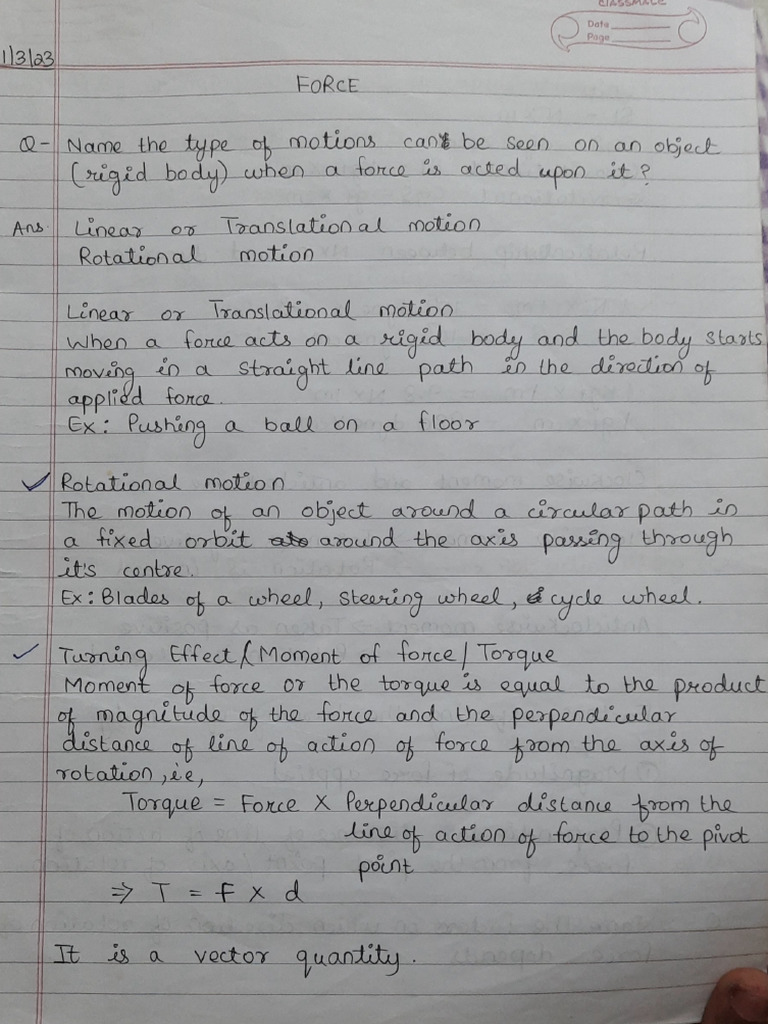 CLASSMATE
Date
Page
1/3/23
FORCE
Q- Name the type of motions can be seen on an object
(rigid body) when a force is acted upon it?
Ans. Linear or Translational motion
Rotational motion
Linear or Translational motion
When a force acts on a rigid body and the body starts
moving in a straight line path in the direction of
applied force.
Ex: Pushing a ball on a floor
Rotational motion
The motion of an object around a circular path in
a fixed orbit around the axis passing through
it's centre.
Ex: Blades of a wheel, steering wheel, cycle wheel.
Turning Effect/Moment of force/Torque
Moment of force or the torque is equal to the product
of magnitude of the force and the perpendicular
distance of line of action of force from the axis of
rotation, ie,
Torque = Force X Perpendicular distance from the
line of action of force to the pivot
point
⇒ T = F X d
It is a vector quantity.